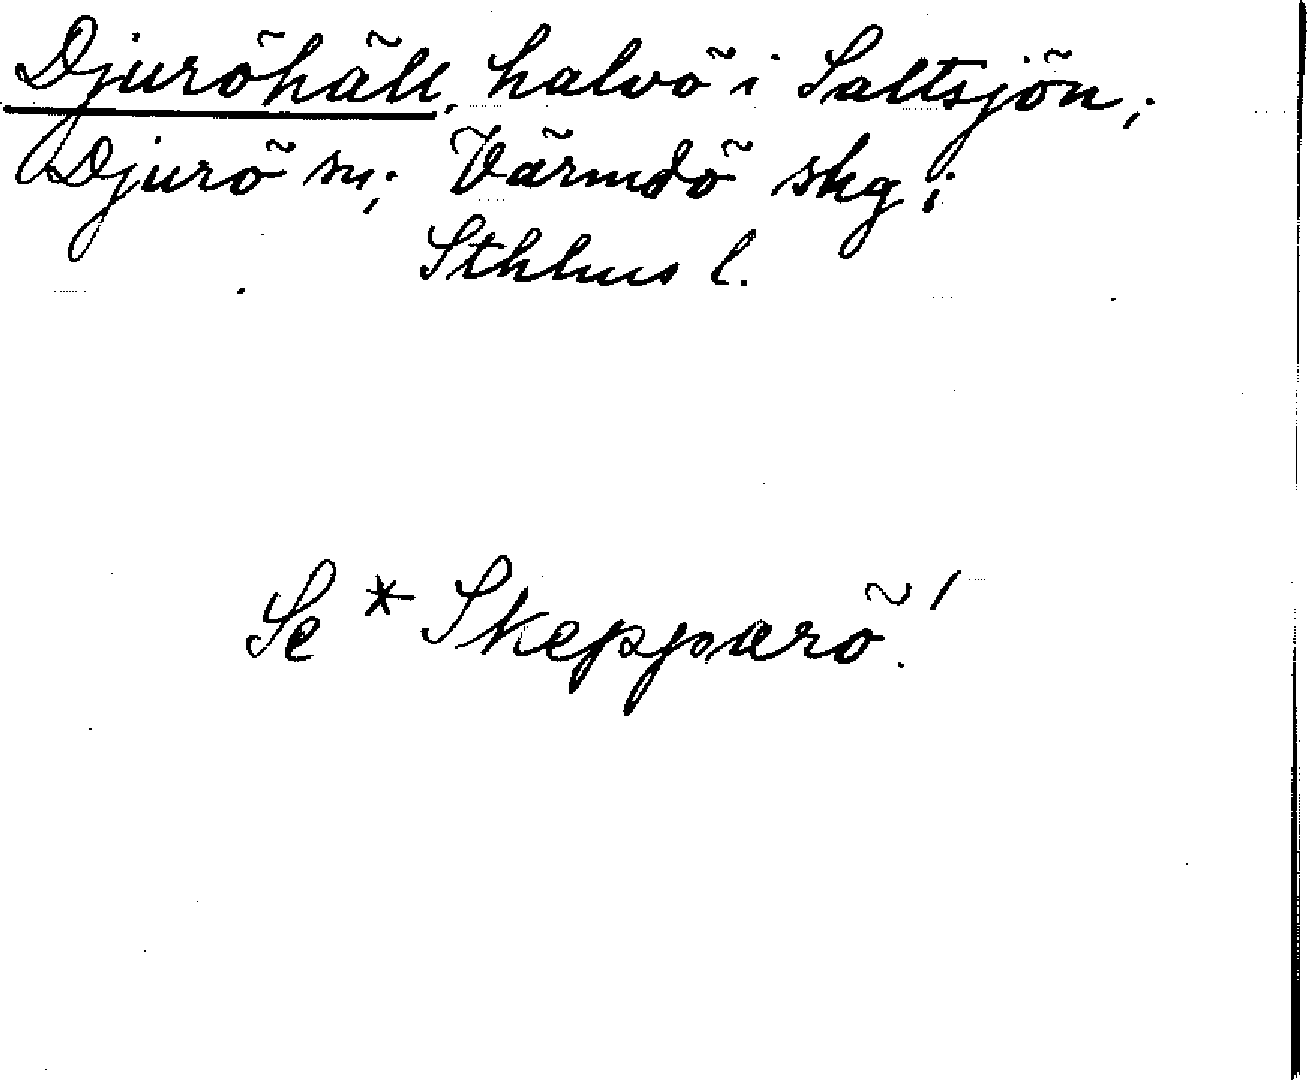 Djuröhäll, halvö i Saltsjön;
Djurö sn; Värmdö skg;
Sthlms l.
Se * Skepparö!